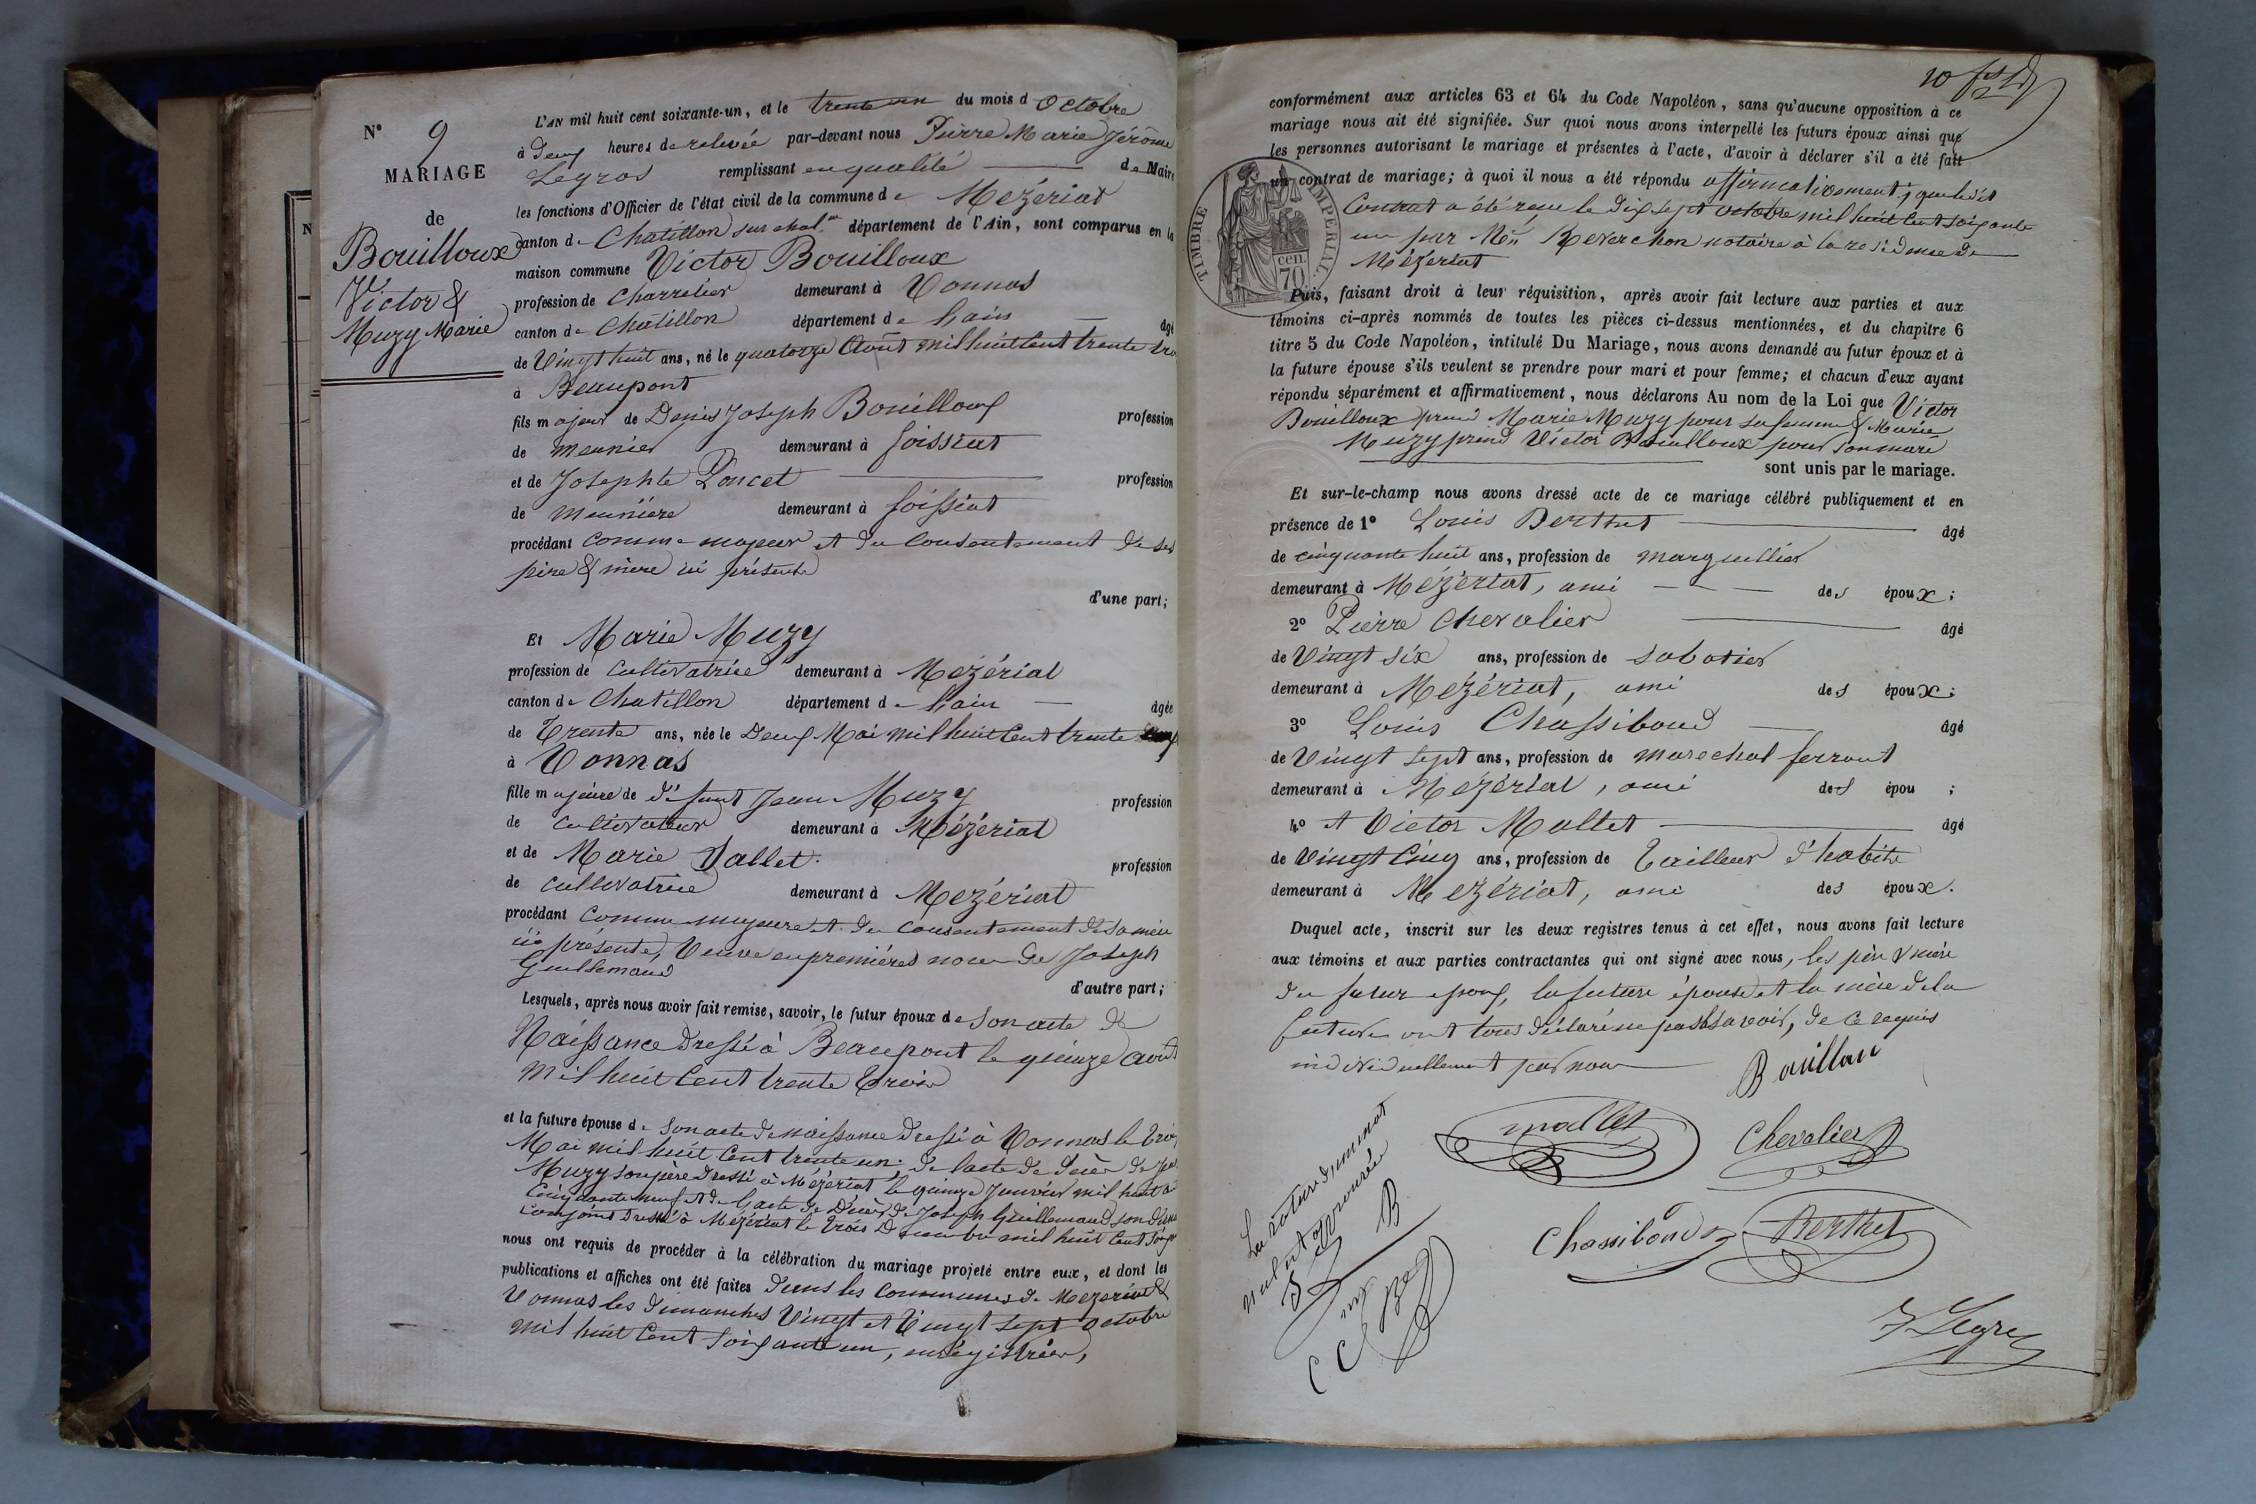 N° 9
MARIAGE
de
Bouilloux
Victor &
Muzy Marie
L'AN mil huit cent soixante-un, et le trente un du mois d Octobre
à deux heures de relevée par-devant nous Pierre Marie Jérôme
Legros remplissant en qualité de Maire
les fonctions d'Officier de l'état civil de la commune de Mézériat
canton de Chatillon sur chal.ne département de l'Ain, sont comparus en la
maison commune Victor Bouilloux
profession de Charretier demeurant à Vonnas
canton de Chatillon département de l'ain âgé
de Vingt huit ans, né le quatorze Août mil huit Cent trente tro
à Beaupont
fils majeur de Denis Joseph Bouilloux profession
de meunier demeurant à foissiat
et de Josephte Poncet profession
de meunière demeurant à foissiat
procédant Comme majeur et du Consentement de ses
père & mère ici présents
d'une part;
Et Marie Muzy
profession de cultivatrice demeurant à Mézériat
canton de Chatillon département de l'ain âgée
de Trente ans, née le Deux Mai mil huit Cent trente
à Vonnas
fille majeure de défunt Jean Muzy profession
de cultivateur demeurant à Mézériat
et de Marie Vallet profession
de cultivatrice demeurant à Mézériat
procédant Comme majeure et du Consentement de sa mère
ici présente, Veuve en premières noces de Joseph
Guillemaud
d'autre part;
Lesquels, après nous avoir fait remise, savoir, le futur époux de son acte de
Naissance Dressé à Beaupont le quinze août
mil huit Cent trente trois
et la future épouse de son acte de naissance Dressé à Vonnas le trois
Mai mil huit Cent trente un; de l'acte de décès de Jean
Muzy son père Dressé à Mézériat le quinze Janvier mil huit C
Cinquante neuf et de l'acte de Décès de Joseph Guillemaud son
conjoint Dressé à Mézériat le trois mil huit Cent soix
nous ont requis de procéder à la célébration du mariage projeté entre eux, et dont les
publications et affiches ont été faites dans les Communes de Mézériat &
Vonnas les dimanches Vingt et Vingt sept octobre
mil huit Cent soixante un, enrégistrées,
10
conformément aux articles 63 et 64 du Code Napoléon, sans qu'aucune opposition à ce
mariage nous ait été signifiée. Sur quoi nous avons interpellé les futurs époux ainsi que
les personnes autorisant le mariage et présentes à l'acte, d'avoir à déclarer s'il a été fait
un contrat de mariage; à quoi il nous a été répondu affirmativement; que ledit
Contrat a été reçu le dix sept octobre mil huit Cent soixante
un par Me Reverchon notaire à la residence de
Mézériat
TIMBRE IMPERIAL
cen. 70
Puis, faisant droit à leur réquisition, après avoir fait lecture aux parties et aux
témoins ci-après nommés de toutes les pièces ci-dessus mentionnées, et du chapitre 6
titre 5 du Code Napoléon, intitulé Du Mariage, nous avons demandé au futur époux et à
la future épouse s'ils veulent se prendre pour mari et pour femme; et chacun d'eux ayant
répondu séparément et affirmativement, nous déclarons Au nom de la Loi que Victor
Bouilloux prend Marie Muzy pour sa femme & Marie
Muzy prend Victor Bouilloux pour son mari
sont unis par le mariage.
Et sur-le-champ nous avons dressé acte de ce mariage célébré publiquement et en
présence de 1° Louis Berthet âgé
de cinquante huit ans, profession de marguillier
demeurant à Mézériat, ami des époux;
2° Pierre Chevalier âgé
de Vingt six ans, profession de sabotier
demeurant à Mézériat, ami des époux;
3° Louis Chassiboud âgé
de Vingt sept ans, profession de marechal ferrant
demeurant à Mézériat, ami des épou ;
4° et Victor Mallet âgé
de Vingt Cinq ans, profession de Tailleur d'habits
demeurant à Mézériat, ami des époux.
Duquel acte, inscrit sur les deux registres tenus à cet effet, nous avons fait lecture
aux témoins et aux parties contractantes qui ont signé avec nous, les père & mère
du futur epoux, la future épouse et la mère de la
future ont tous déclaré ne pas savoir, de ce requis
individuellement par nous
Bouillou
mallet
Chevalier
Chassiboud
Berthet
J Legros
La rature d'un mot
nul est approuvée
B